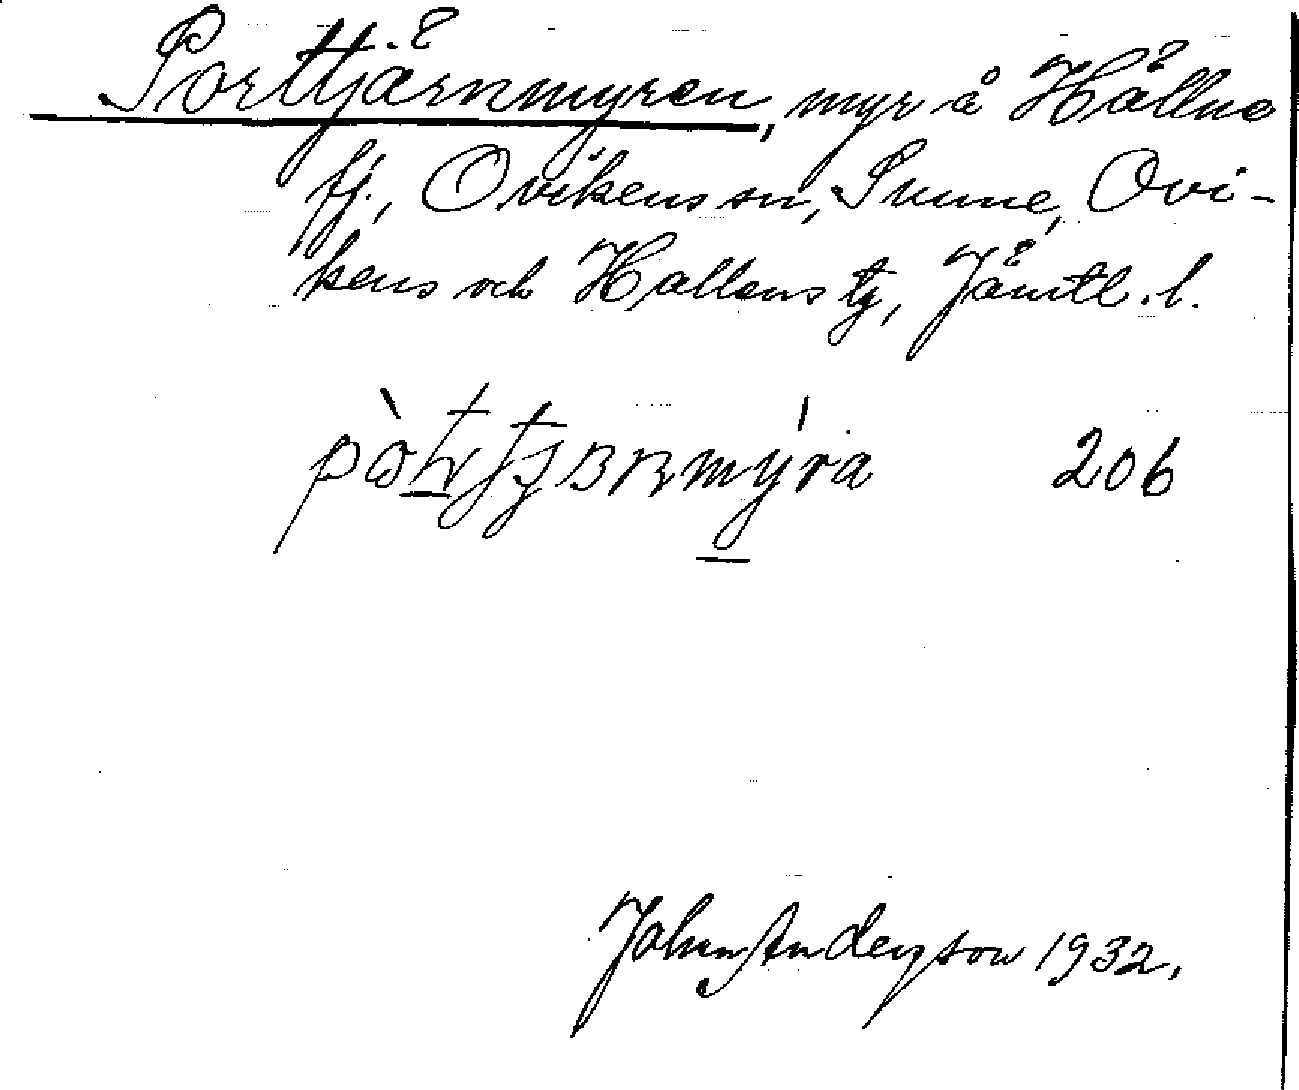 Porttjärnmyren, myr å Hållne
fj., Ovikens sn, Sunne, Ovi-
kens och Hallens tg, Jämtl. l.
206
John Anderson 1932.